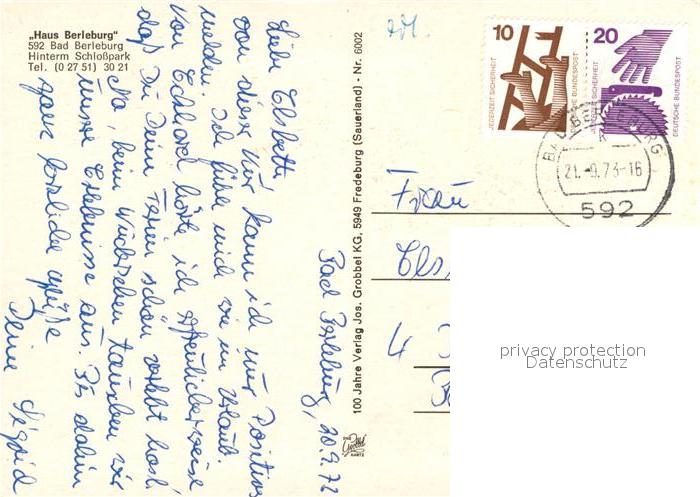 „Haus Berleburg"
592 Bad Berleburg
Hinterm Schloßpark
Tel. (0 27 51) 30 21
Bad Berleburg, 20.9.72
Liebe Elsbeth
von dieser Kur kann ich nur Positives
melden. Ich fühle mich wie im Urlaub.
Von Eckhard hörte ich erfreulicherweise
daß Du Deine Ferien schön verlebt hast.
Na, beim Wiedersehen tauschen wir
unsere Erlebnisse aus. Bis dahin
ganz herzliche Grüße
Deine Sigrid
100 Jahre Verlag Jos. Grobbel KG, 5949 Fredeburg (Sauerland) - Nr. 6002
Grobbel
KARTE
10
JEDERZEIT SICHERHEIT
DEUTSCHE BUNDESPOST
20
JEDERZEIT SICHERHEIT
DEUTSCHE BUNDESPOST
BAD BERLEBURG
21.-9.73-16
592
Frau
Els
4
privacy protection
Datenschutz